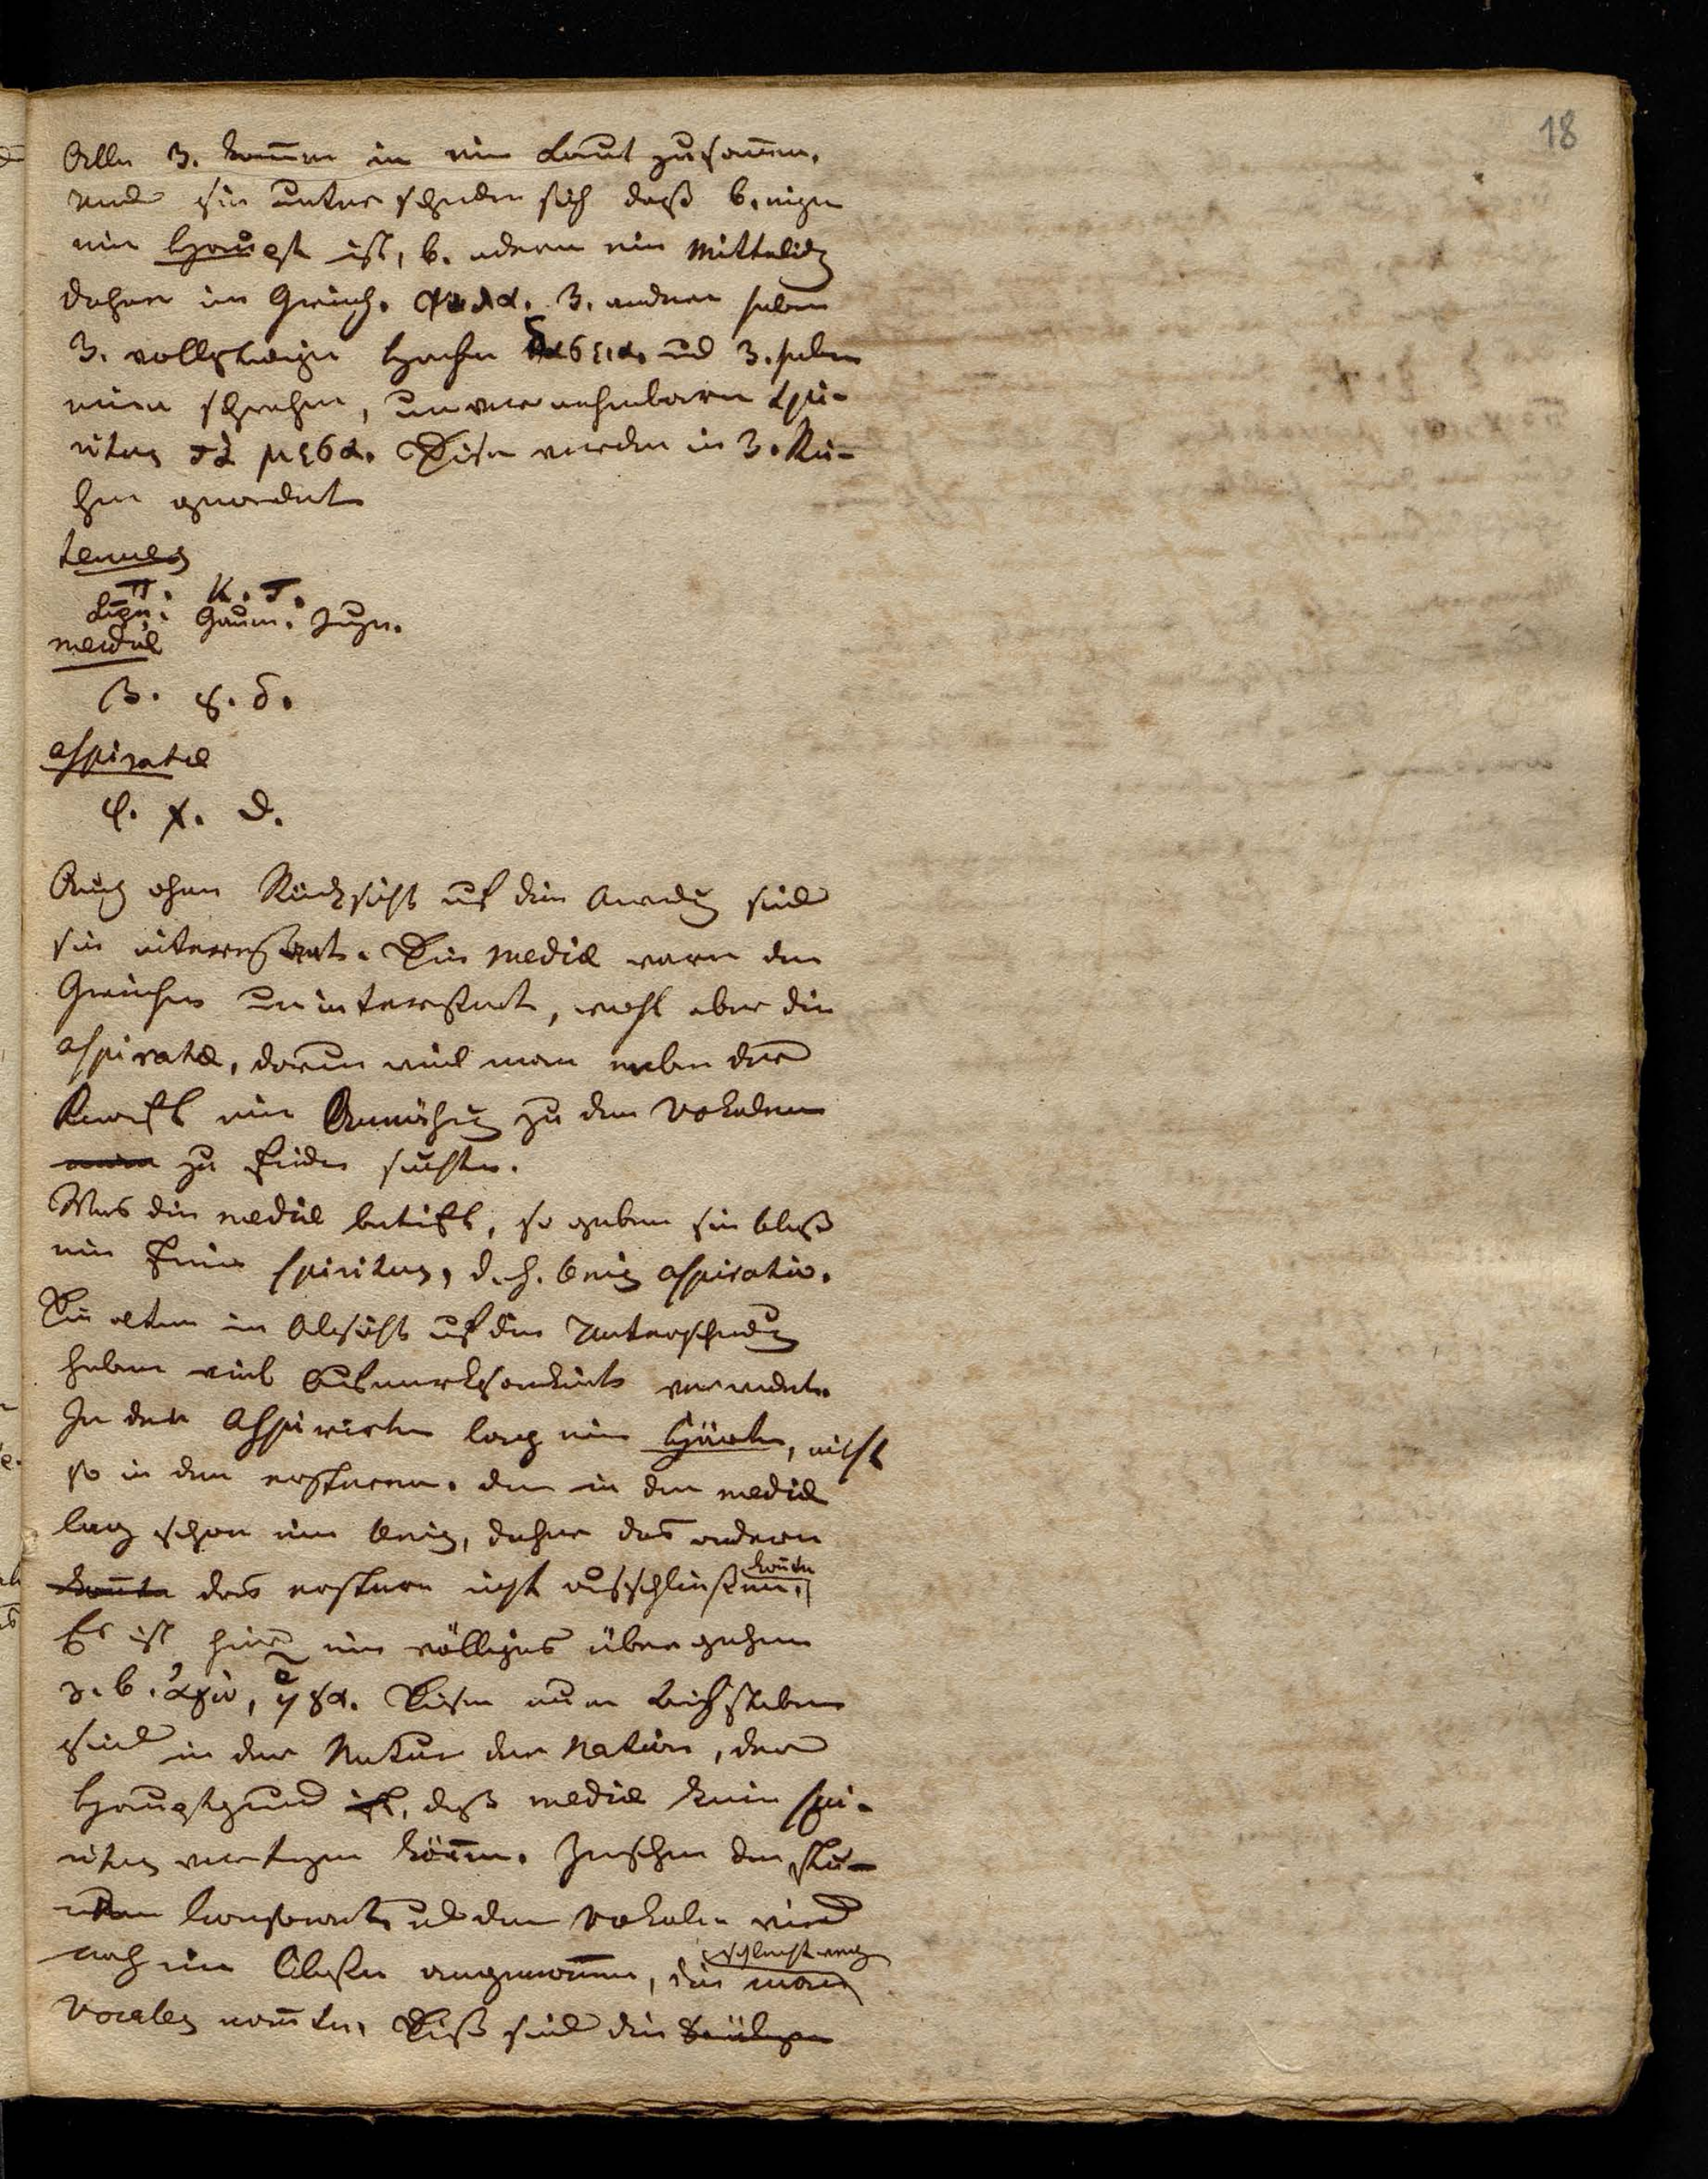 18
Alle 3. komen in ein Laut zusamen.
und sie unterscheiden sich daß b. einigen
ein Hauch ist, b. andern ein Mittelding
daher im Griech. ψιλα. 3. andere haben
3. vollständigen Hauch δασεια. und 3. haben
einen schwachen, unvernehmbaren Spi-
ritus τα μεσα. Diese werden in 3. Rei-
hen geordnet
tenues
π. κ. τ.
Lipp. Gaum. Zung.
mediae
β. γ. δ.
aspiratae
φ. χ. θ.
Auch ohne Rücksicht auf den Anwendung sind
sie interessant. Die mediae waren den
Griechen uninteressant, wohl aber die
aspiratae, darum weil man neben der
Kraft eine Annäherung zu den Vokalen
zu finden suchte.
Was die mediae betrift, so geben sie bloß
ein feiner spiritus, d. h. wenig aspiratio.
Die alten in Absicht auf die Unterscheidung
haben viel Aufmerksamkeit verwendet.
In den Aspirirten lag eine Härte, nicht
so in den ersteren. den in den mediae
lag schon ein wenig, daher das andere
konnte das erstere nicht ausschließen konnte.
Es ist hier ein völliges übergehen
z. b. ἄγω, ἦγα. Diese neun Buchstaben
sind in der Natur der Nation, der
Hauptgrund ist, daß mediae kein spi-
ritus vertragen können. Zwischen den stu-
men Consonanten und den Vokalen wird
noch eine Classe angenommen, die man schlechtweg
Vocales nannte. Diß sind die